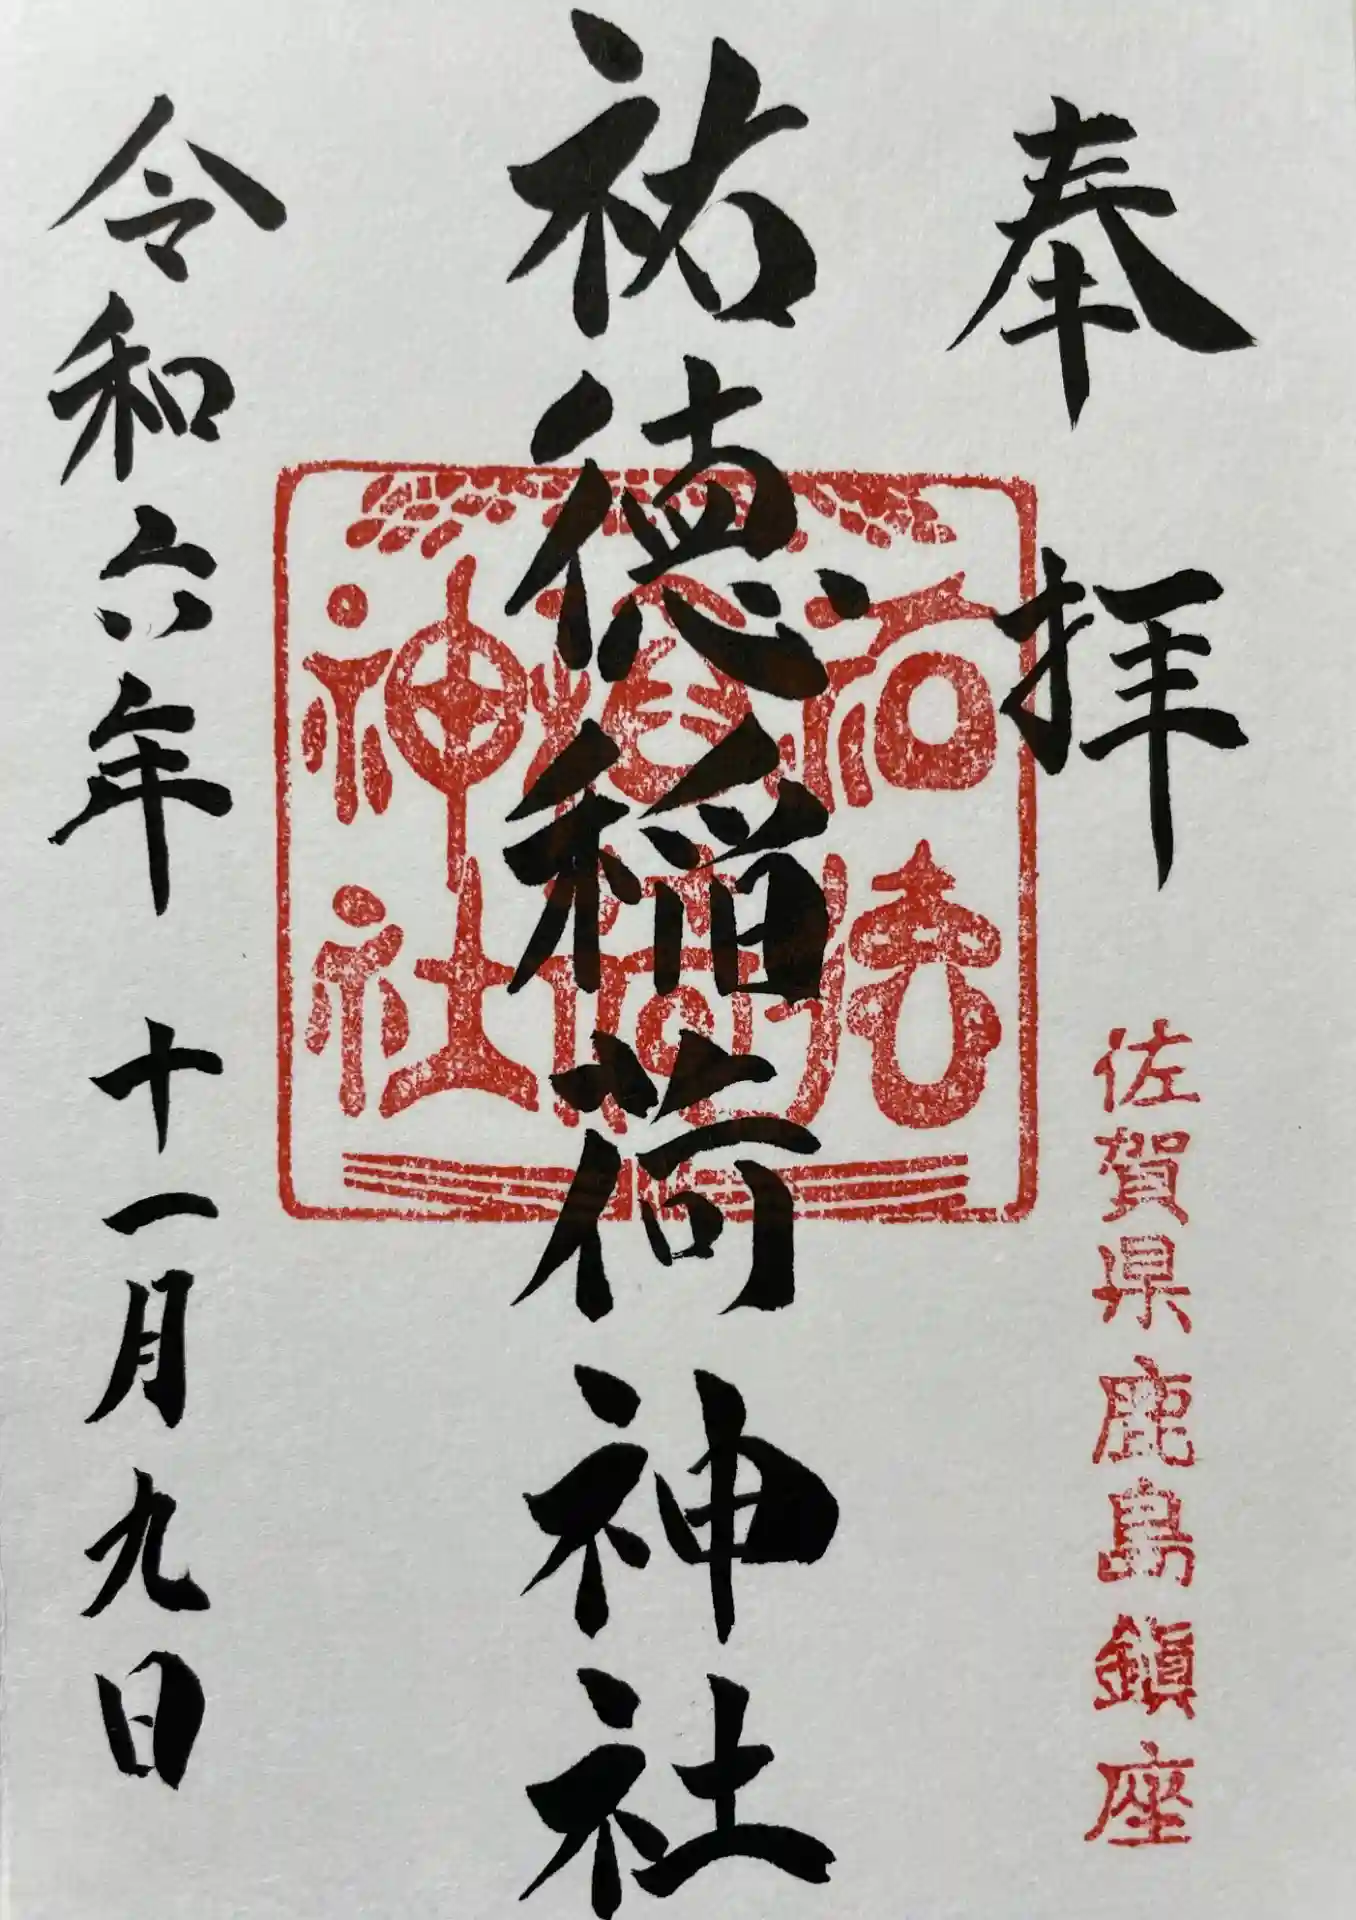 奉拝
佐賀県鹿島鎮座
祐徳稲荷神社
祐徳
稲荷
神社
令和六年 十一月九日